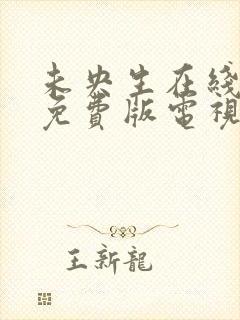 未央生在綫
免費版電視
王新龍